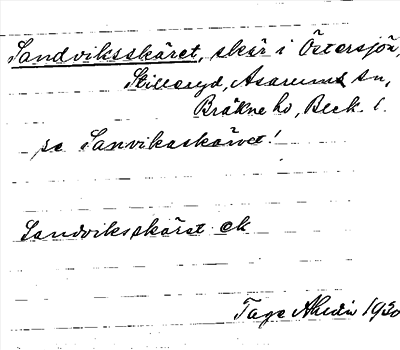 Sandviksskäret, skär i Östersjön,
Stilleryd, Asarums sn,
Bräkne hd, Blek. l.
se Sanvikaskäret!
Sandviksskäret ek
Tage Ahldin 1930